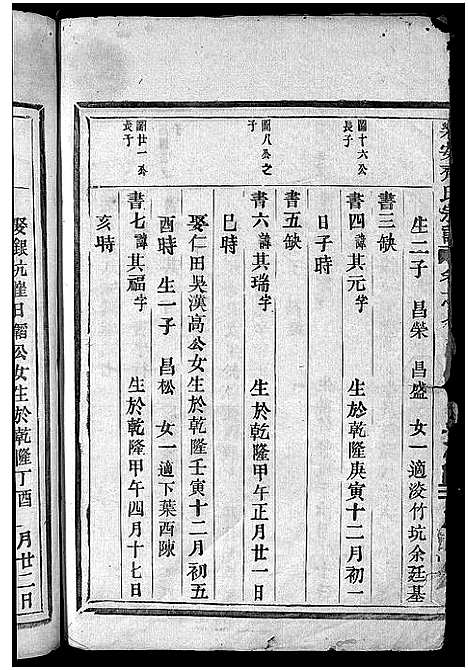 生二子 昌榮 昌盛 女一適淩竹坑余廷基
書三缺
圖十六公長子
書四諱其元字 生於乾隆庚寅十二月初一
日子時
書五缺
圖八公之子
書六諱其瑞字 生於乾隆甲午正月廿一日
巳時
娶仁田吳漢高公女生於乾隆壬寅十二月初五
酉時 生一子 昌松 女一適下葉西陳
圖廿一公長子
書七諱其福字 生於乾隆甲午四月十七日
亥時
娶銀坑崔日霜公女生於乾隆丁酉 月廿二日